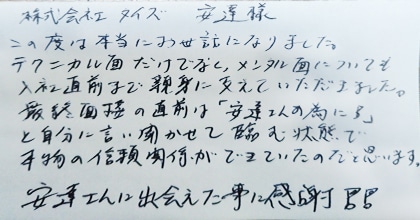 株式会社タイズ 安達様
この度は本当にお世話になりました。
テクニカル面だけでなく、メンタル面についても
入社直前まで親身に支えていただきました。
最終面接の直前は「安達さんの為にも」
と自分に言い聞かせて臨む状態で
本物の信頼関係ができていたのだと思います。
安達さんに出会えた事に感謝!!